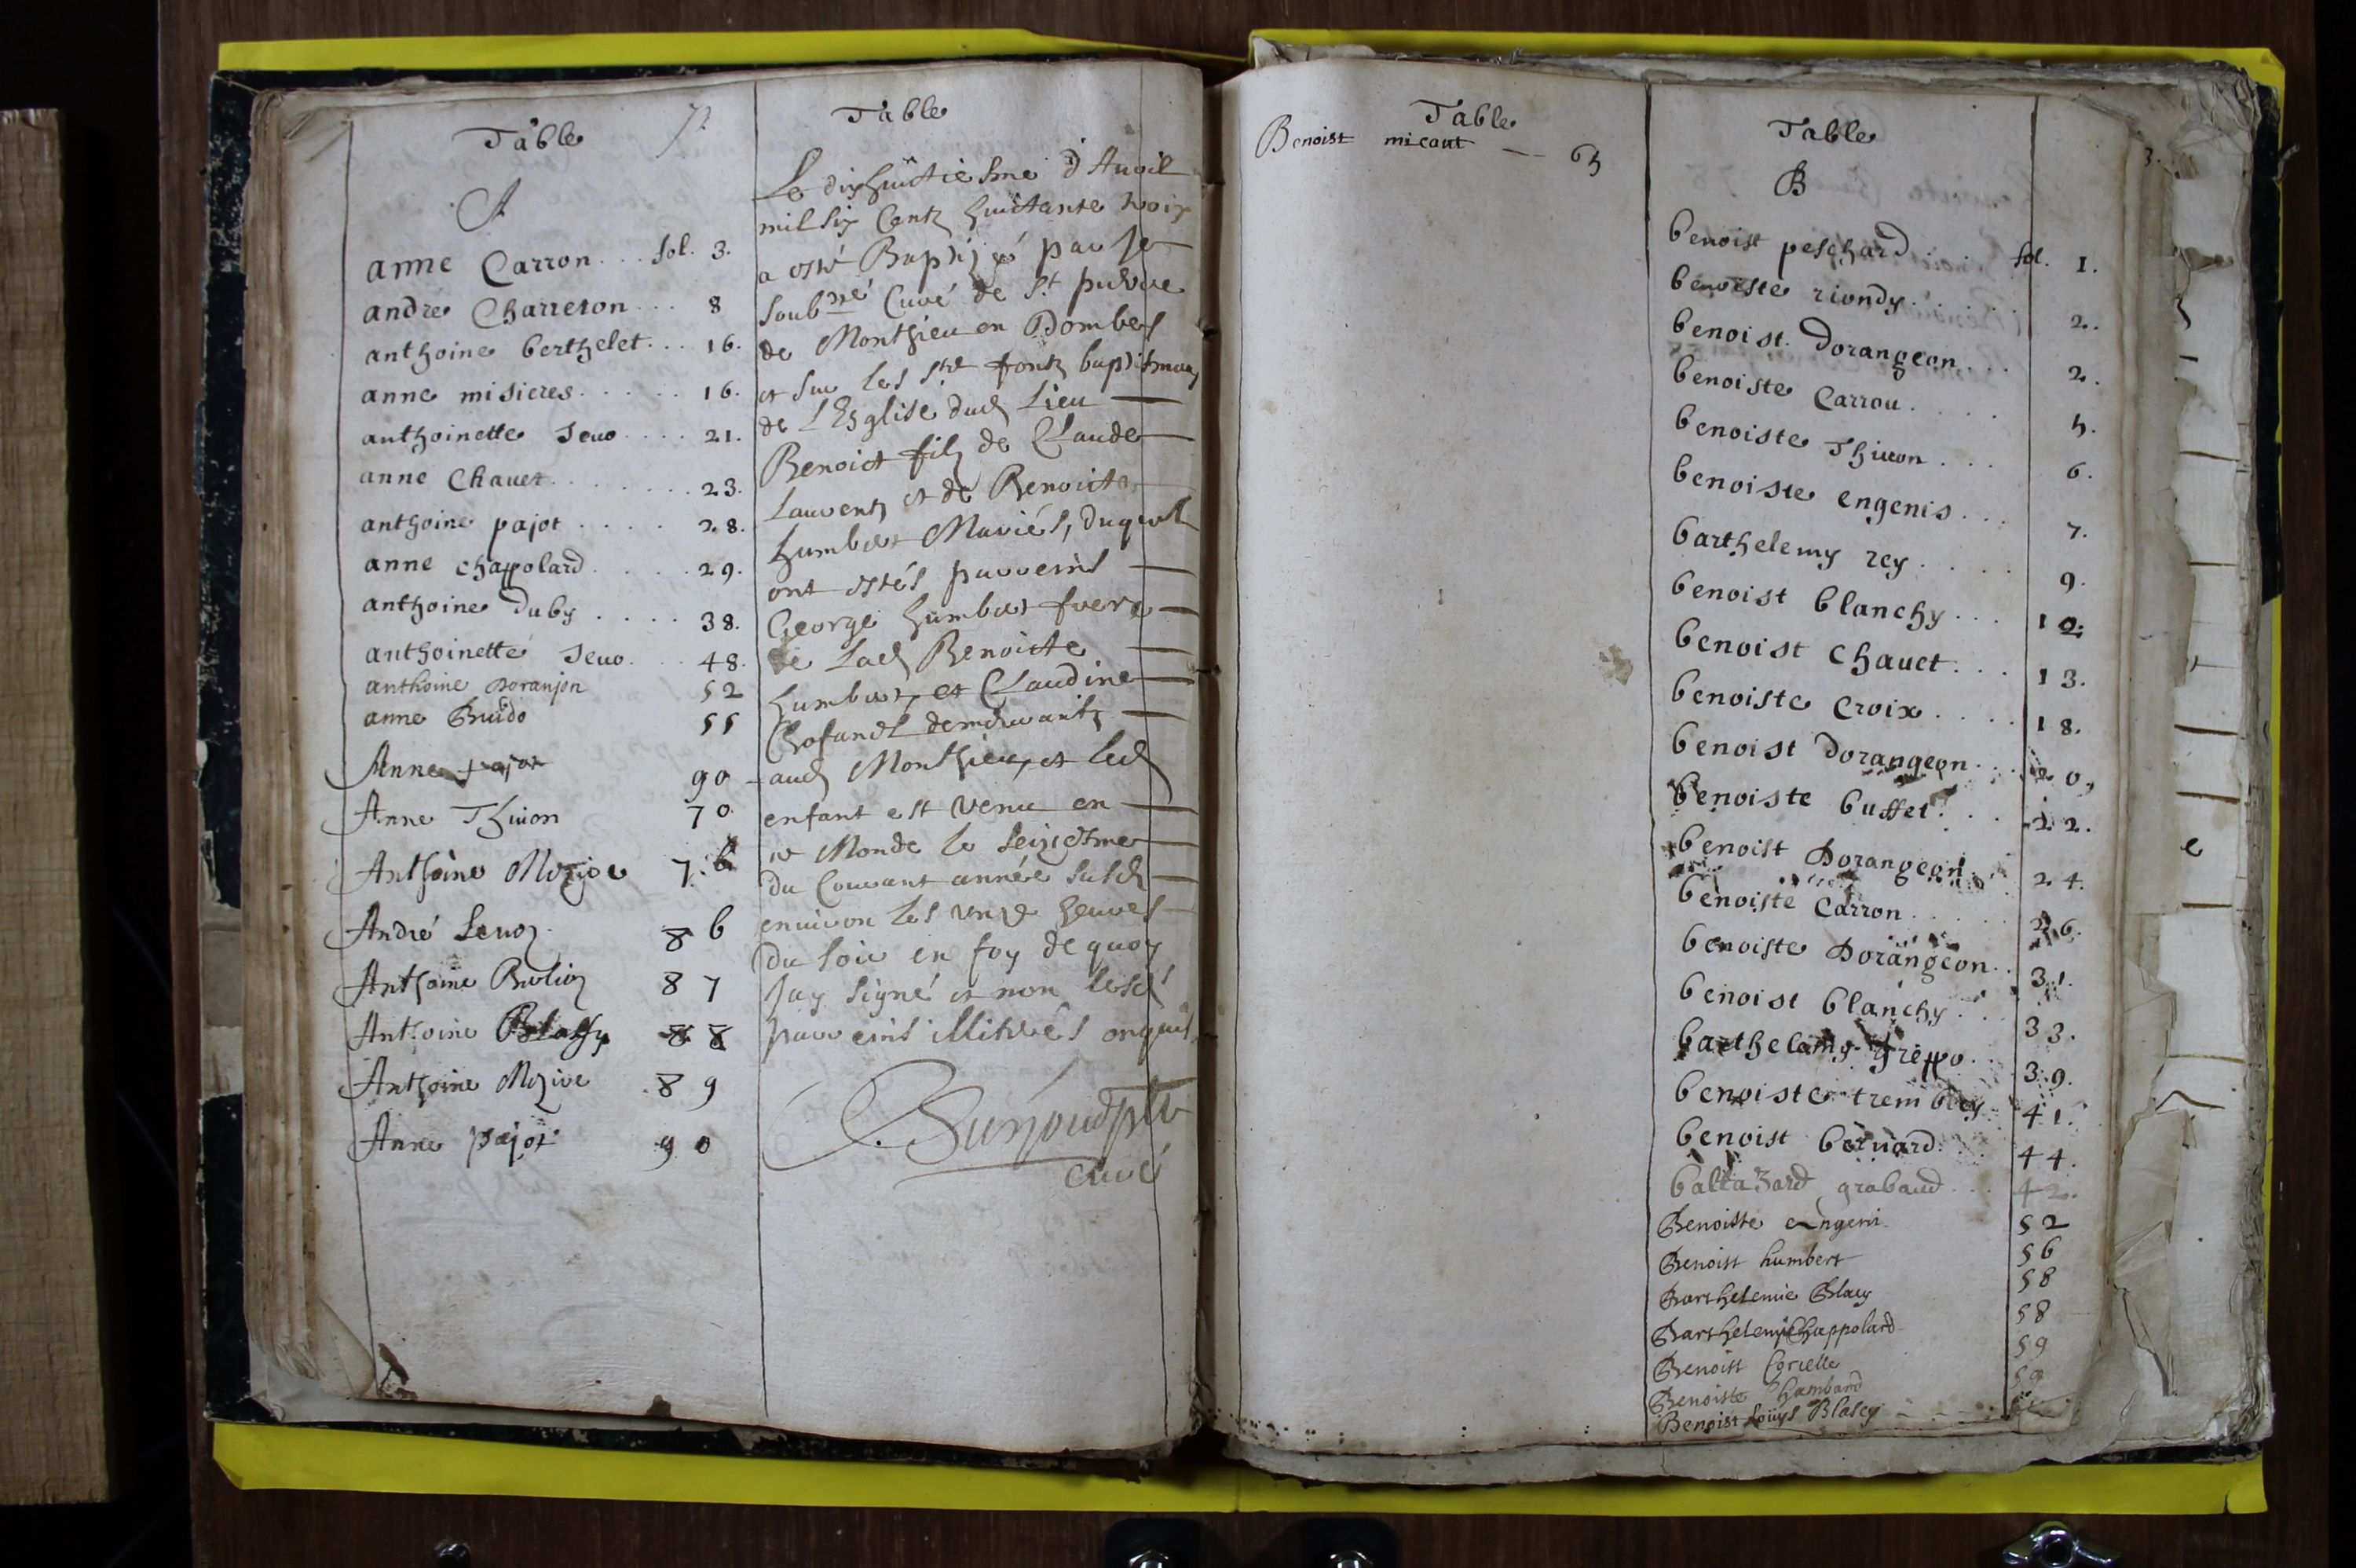 Table
A
anne Carron . . . fol. 3.
andré Charreton . . . 8
anthoine berthelet . . . 16.
anne misieres . . . . . . 16.
anthoinette Seuo . . . . 21.
anne Chauet . . . . . . . . 23.
anthoine pajot . . . . . 28.
anne chappolard . . . . . 29.
anthoine duby . . . . 38.
anthoinette Seuo . . . 48.
anthoine Doranjon 52
anne Guido 55
Anne pajot 90
Anne Thiuon 70
Anthoine 7.6
André 86
Anthoine 87
Anthoine 88
Anthoine 89
Anne pajot 90
Table
Le dixhuictiesme d'Auril
mil six Cents huictante troix
a esté Baptizé par Je
soubsné Curé de St pierre
de Monthieu en Dombes
et sur les sts fonts baptismaux
de L'Esglise dud Lieu —
Benoict filz de Claude —
Laurent et de Benoicte —
humbert Mariés, duquel
ont estés parreins —
George humbert frere —
de Lad Benoicte —
humbert, et Claudine —
demeurants —
aud Monthieu, et led
enfant est venu en —
ce Monde le seiziesme —
du Courant année susd —
enuiron les unze heures —
du soir en foy de quoy
Jay signé et non lesd
parreins illitérés enquis.
curé
Table
Benoist micaut — — 65
Table
B
benoist peschard . . . fol. 1.
benoiste riondy . . . . 2.
benoist dorangeon . . . 2.
benoiste Carron . . . . 5.
benoiste Thiuon . . . 6.
benoiste engenis . . . 7.
barthelemy rey . . . . 9.
benoist blanchy . . . 12.
benoist Chauet . . . 13.
benoiste Croix . . . . 18.
benoist dorangeon . . . 20,
benoiste buffet . . . 22.
benoist Dorangeon . . 24.
benoiste Carron . . . . . 26.
benoiste Dorangeon . . 31.
benoist blanchy . . . 33.
barthelemy greppo . . 39.
benoiste trembley . . 41.
benoist bernard . . . 44.
baltazard grabaud . . . 42.
Benoiste engeni 52
Benoist humbert 56
Barthelemie Blacy 58
Barthelemie Chappolard 58
Benoist 59
Benoiste Chambard 59
Benoist Louys Blasey
3.